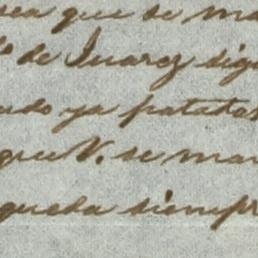 sea que se ma
de Juarez sig
udo ya patata
que V. se ma
queda siempr